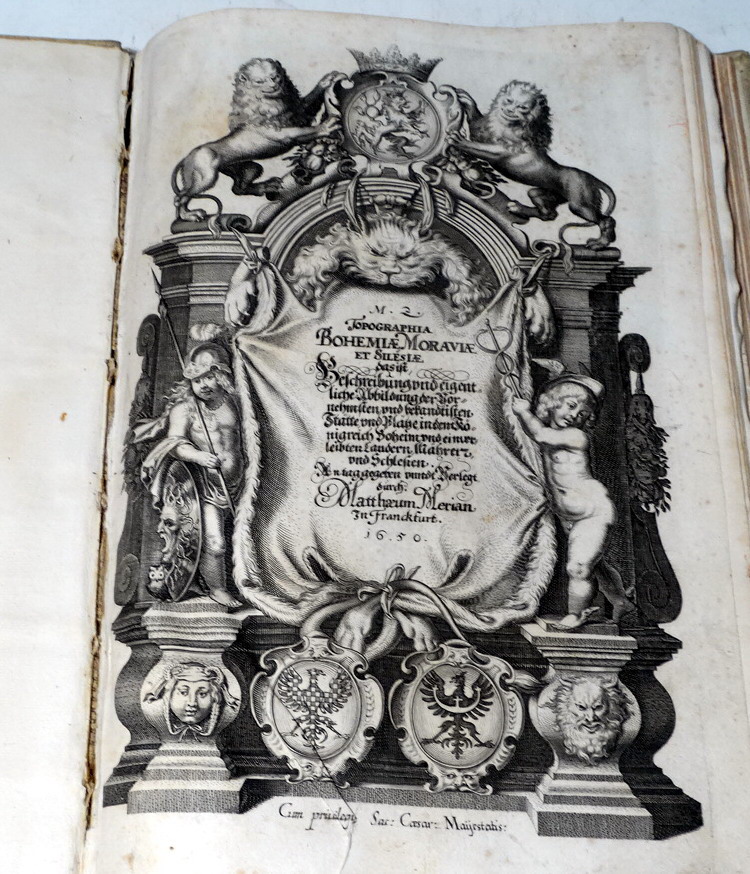 M. Z.
TOPOGRAPHIA
BOHEMIÆ, MORAVIÆ
ET SILESIÆ
das ist
Beschreibung vnd eigent,
liche Abbildung der Vor-
nehmsten vnd bekandtisten
Stätte vnd Plätze in dem Kö
nigreich Boheim vnd einver
leibten Landern, Mähren,
vnd Schlesien.
An tag gegeben vnndt Verlegt
durch:
Matthæum Merian
In Franckfurt.
1650.
Cum privilegio Sac: Cæsar: Maijestatis: